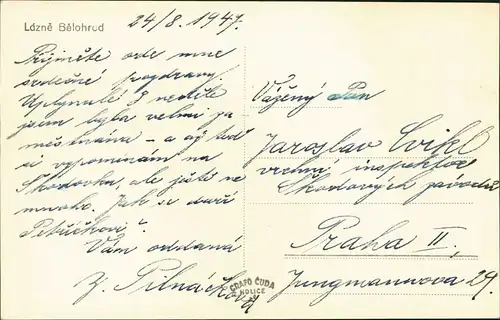 Lázně Bělohrad
24/8. 1947.
Přijměte ode mne
srdečné pozdravy.
Uplynulé 3 neděle
jsem byla velmi
– a až teď
si vzpomínám na
Škodovku, ale ještě ne
mnoho. Jak se daří
Petříčkovi?
Vám oddaná
Z. Pilnáčková
GRAFO ČUDA
HOLICE
Vážený Pan
Jaroslav Cvikl
vrchní inspektor
Škodových závodů
Praha II.,
Jungmannova 29.